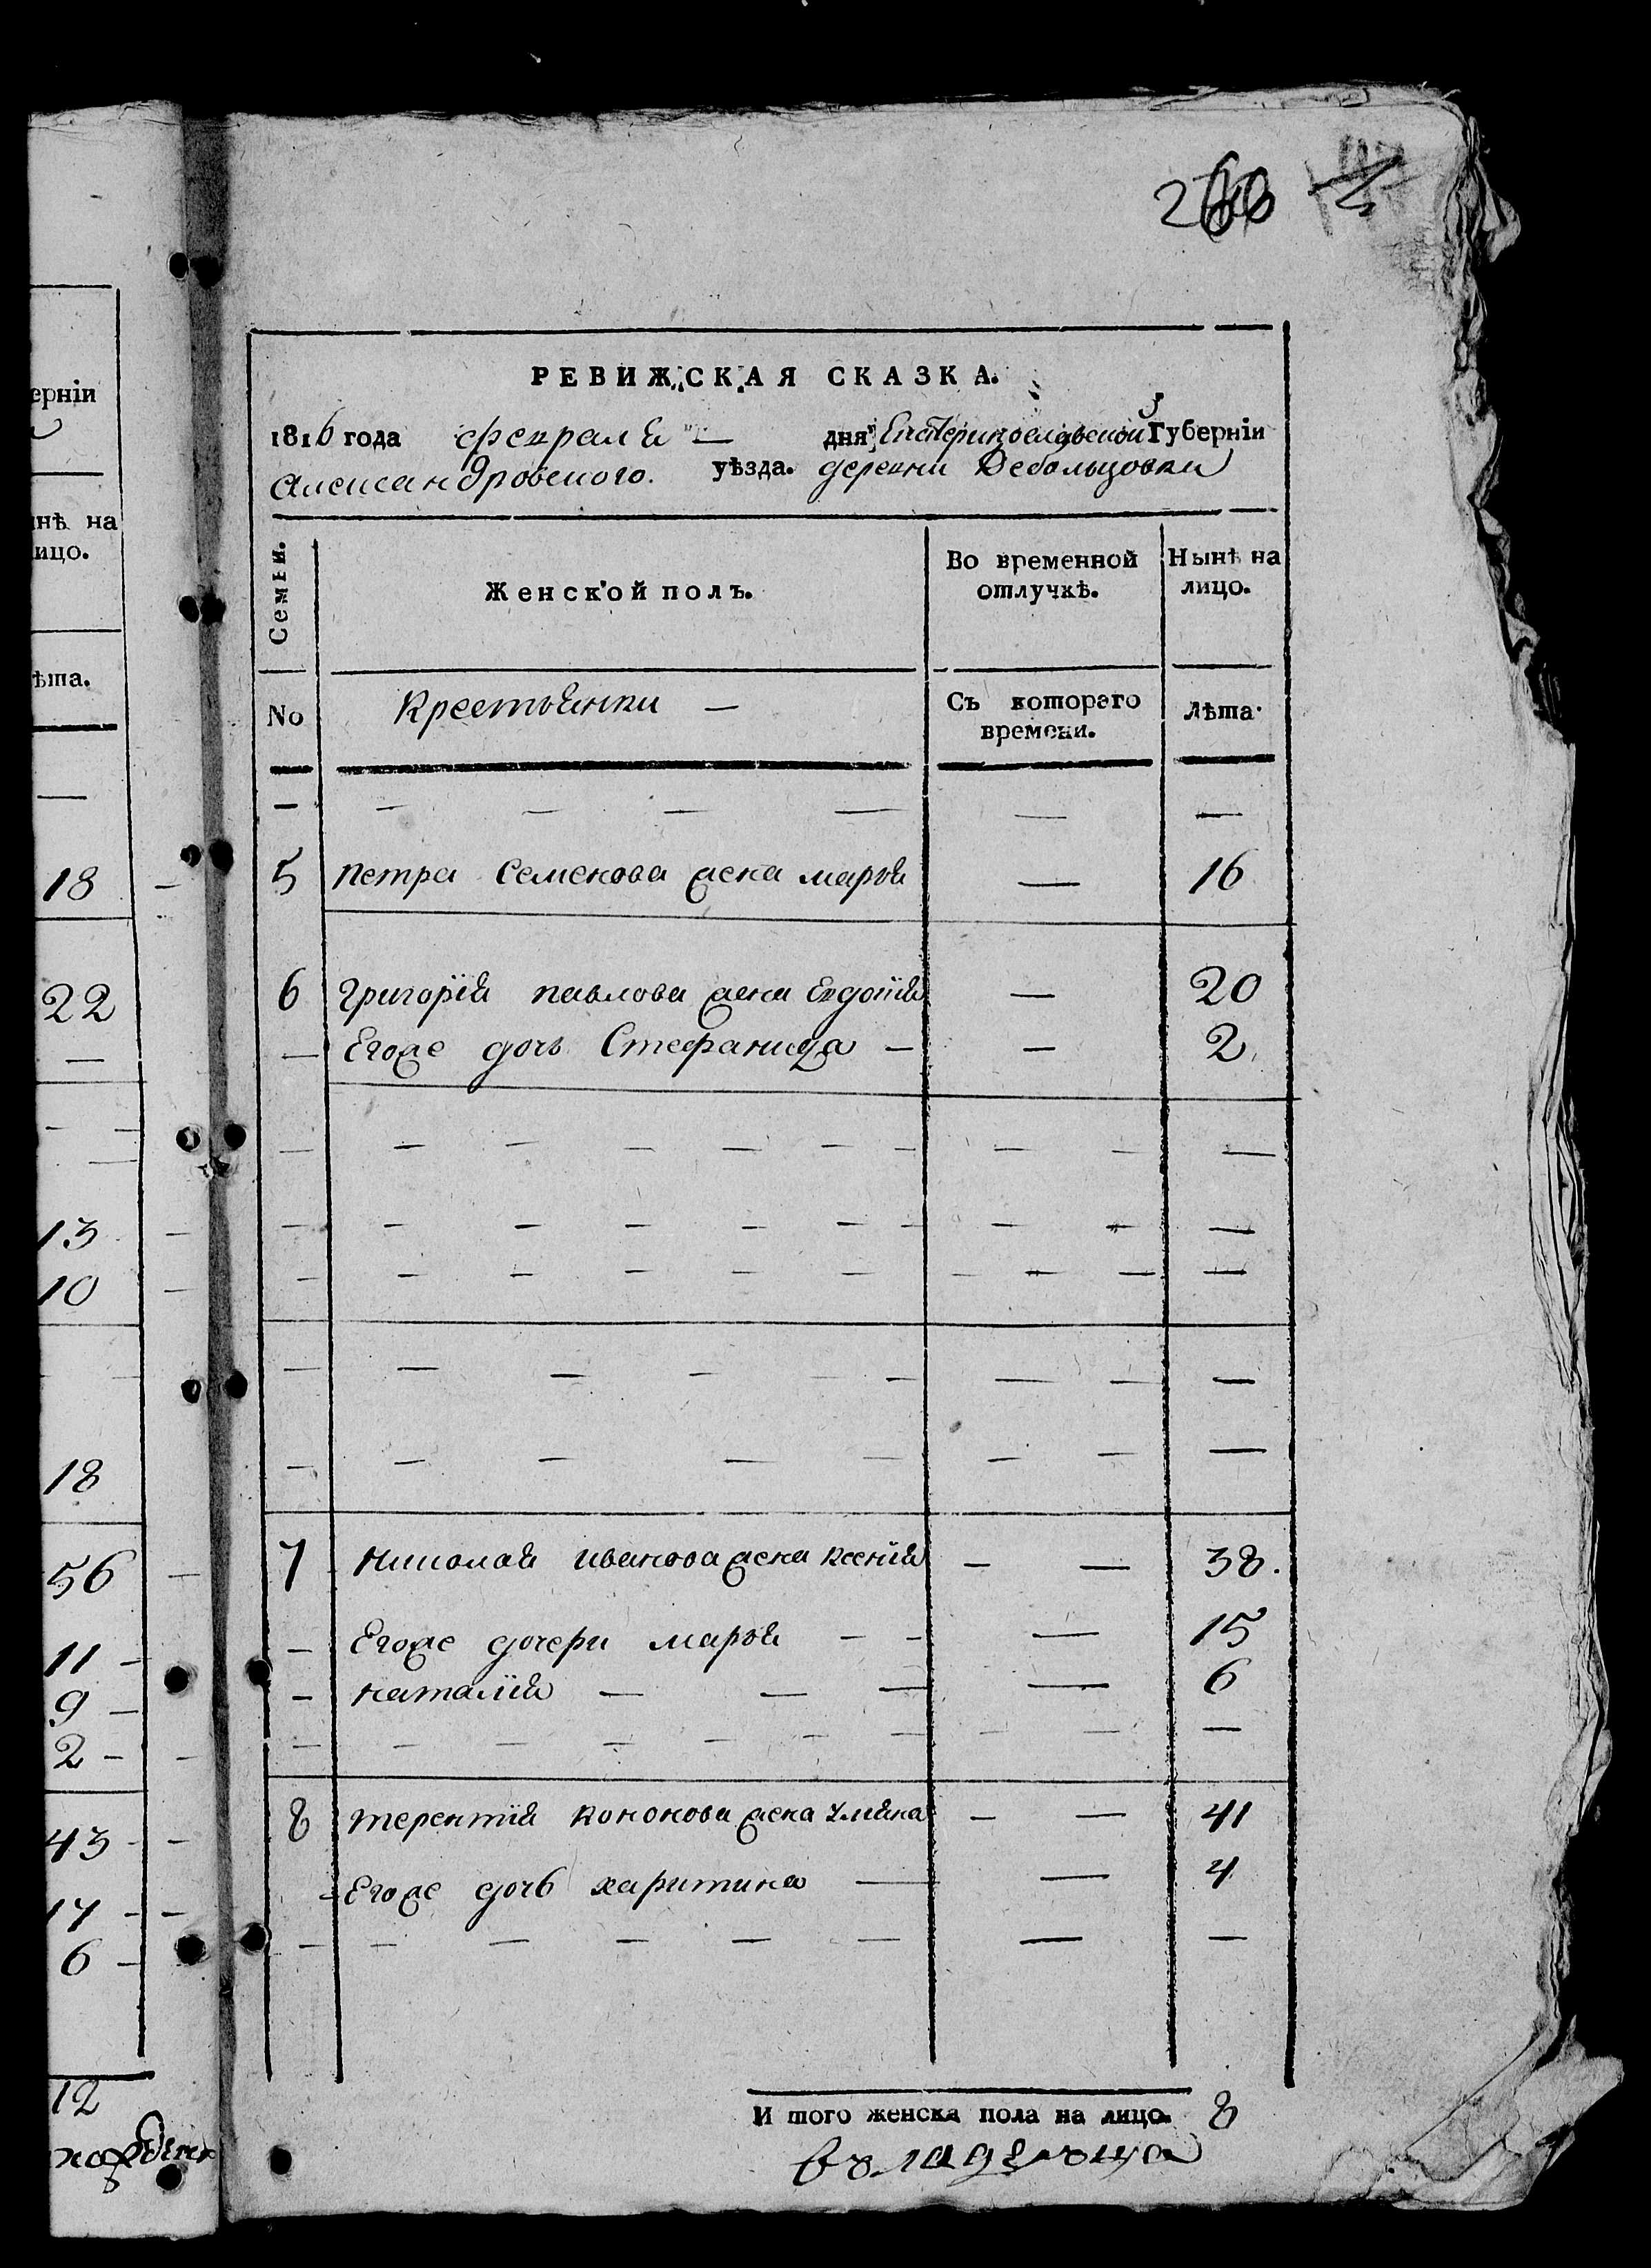 ерніи
нѣ на
ицо.
ѣта.
18
22
13
10
18
56
11
9
2
43
17
6
12
РЕВИЖСКАЯ СКАЗКА.
1816 года февраля — дня Екатеринославской Губерніи
Александровского. уѣзда. деревни Дебольцовки
Семьи. Женской полъ. Во временной отлучкѣ. Нынѣ на лицо.
No Крестьянки — Съ котораго времени. Лѣта.
5 Петра Семенова жена марья — 16
6 Григорія павлова жена Евдокія — 20
— Егоже дочь Стефанида — — 2
7 Николая иванова жена Ксенія — — 38.
— Егоже дочери марья — — — 15
— наталія — — — — 6
8 терентія кононова жена Уляна — — 41
Егоже дочь харитина — — 4
И того женска пола на лицо. 8